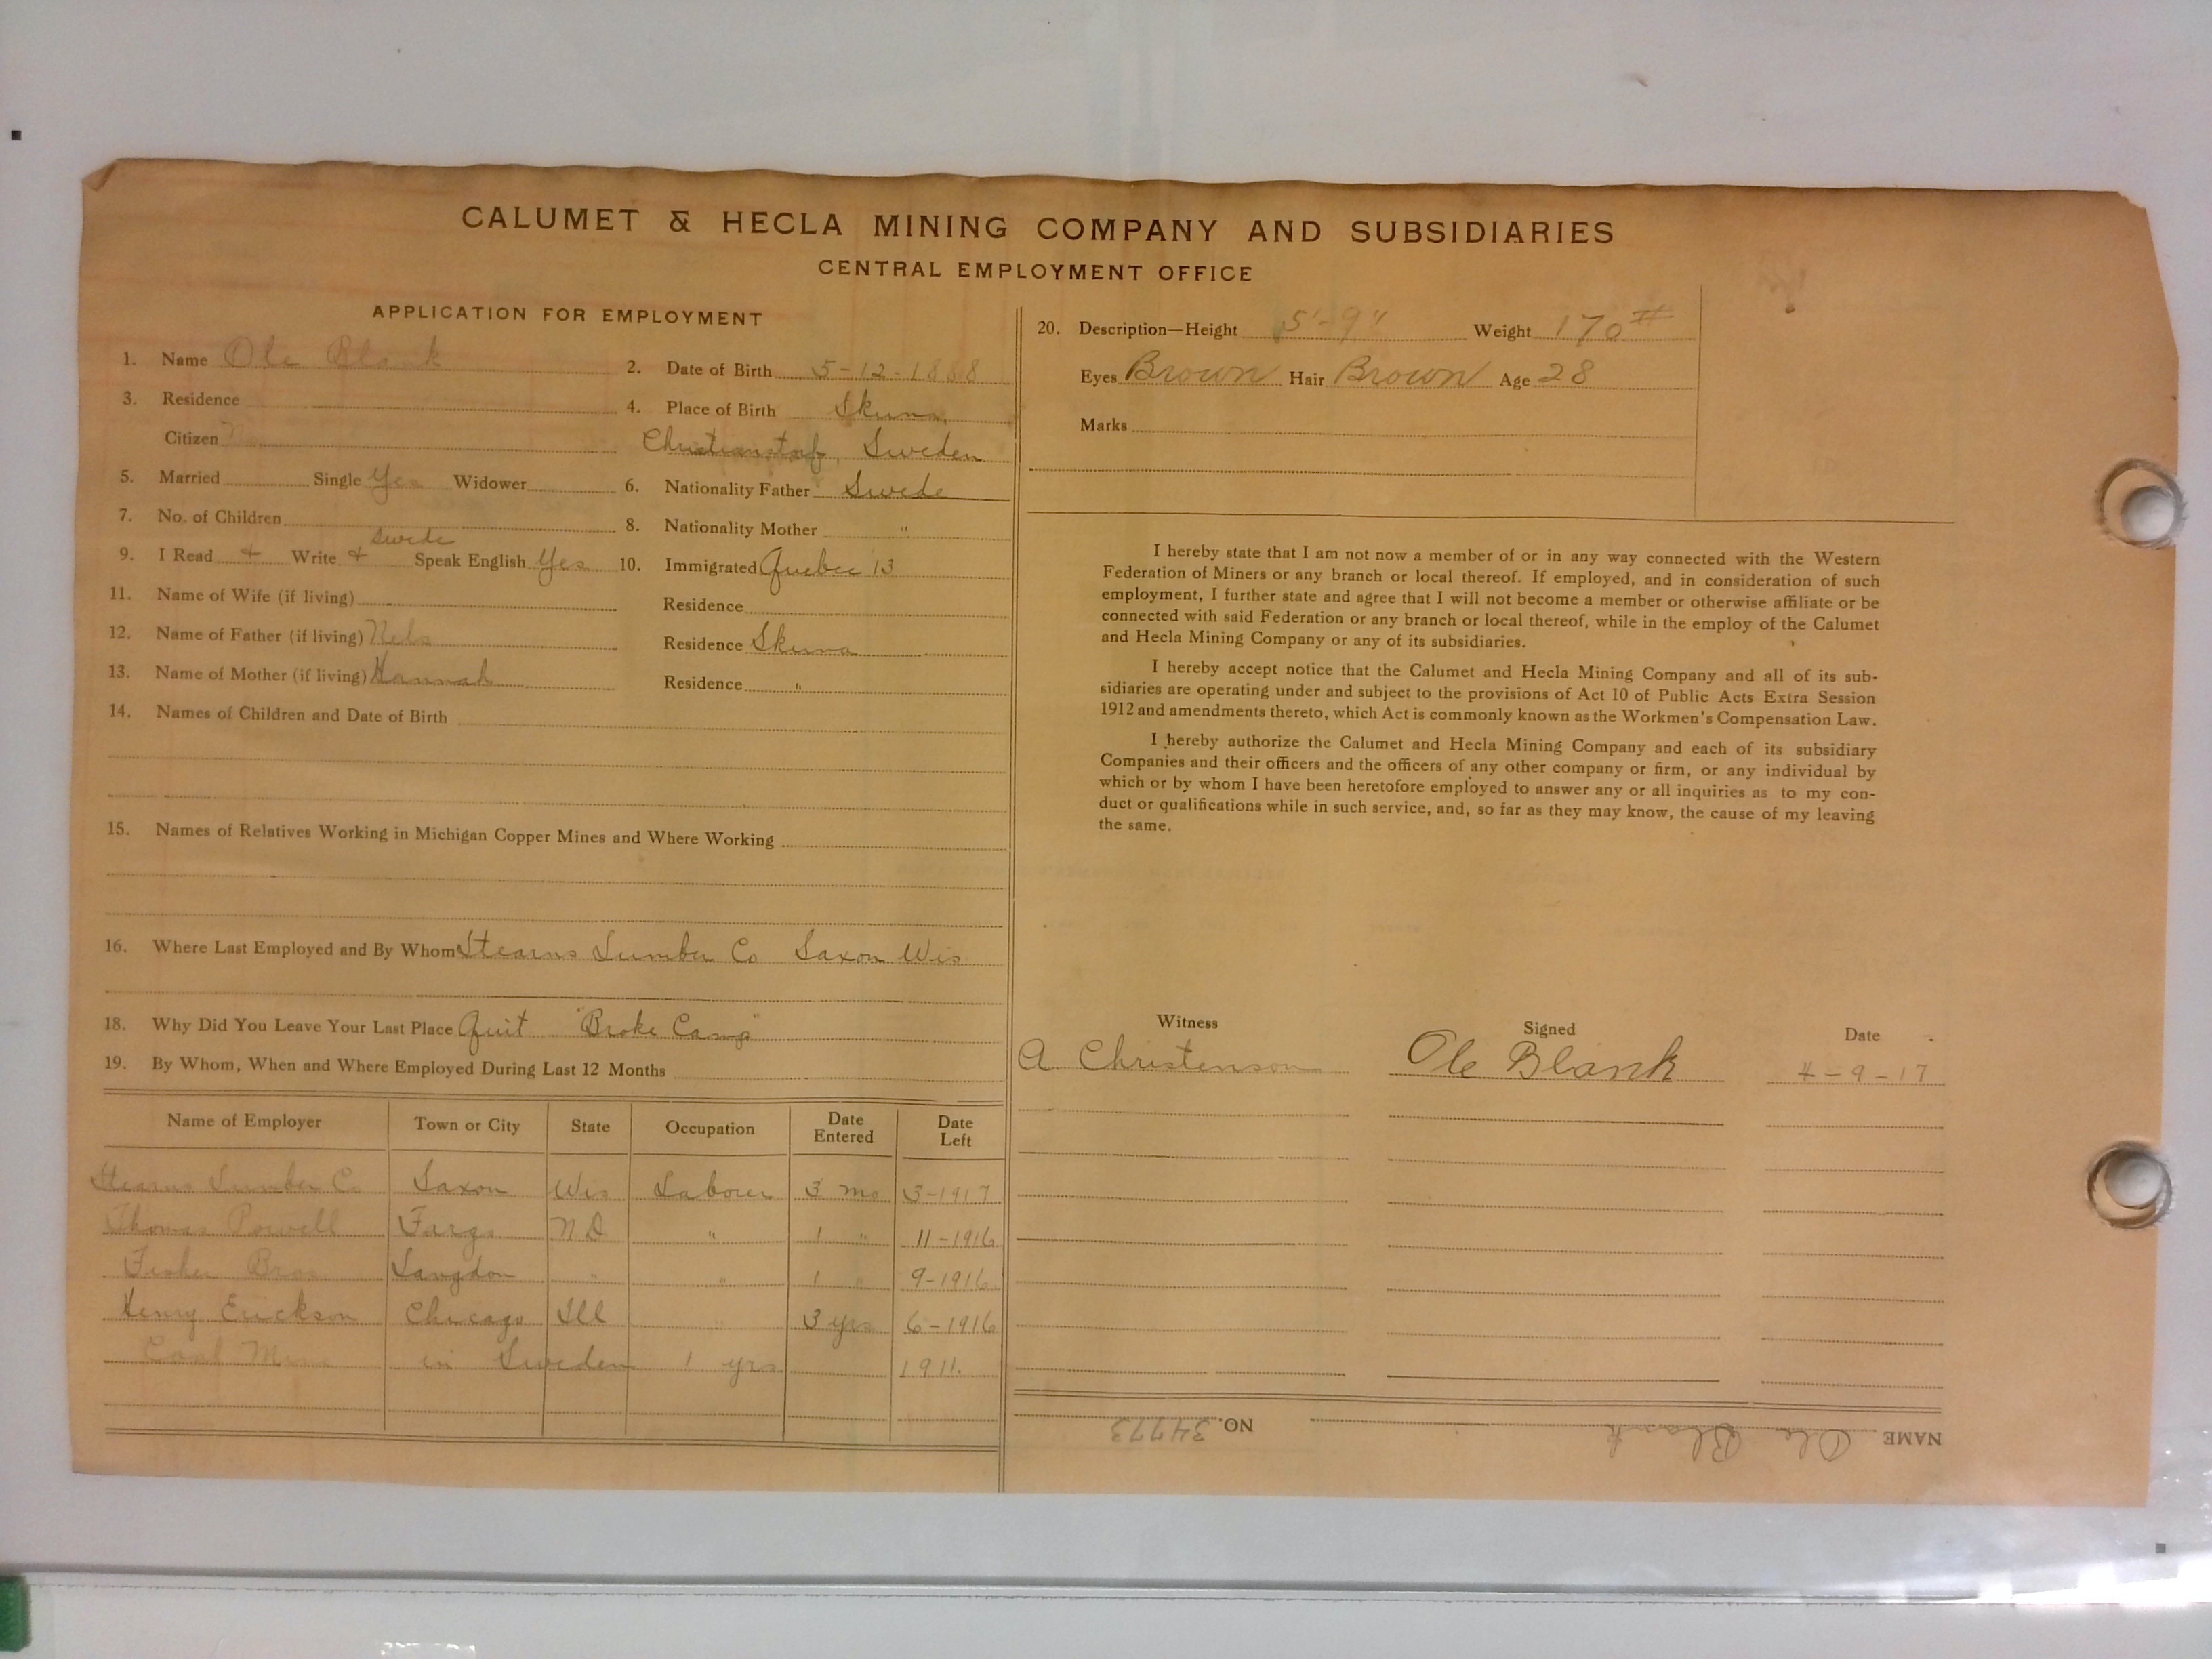 CALUMET & HECLA MINING COMPANY AND SUBSIDIARIES
CENTRAL EMPLOYMENT OFFICE
APPLICATION FOR EMPLOYMENT
1. Name Ole Blank 2. Date of Birth 5-12-1888
3. Residence 4. Place of Birth Skurva,
Citizen Sweden
5. Married Single Yes Widower 6. Nationality Father Swede
7. No. of Children 8. Nationality Mother "
Swede
9. I Read + Write + Speak English Yes 10. Immigrated Quebec 13
11. Name of Wife (if living) Residence
12. Name of Father (if living) Nels Residence Skurva
13. Name of Mother (if living) Hannah Residence "
14. Names of Children and Date of Birth
15. Names of Relatives Working in Michigan Copper Mines and Where Working
16. Where Last Employed and By Whom Stearns Lumber Co Saxon Wis
18. Why Did You Leave Your Last Place Quit "Broke Camp"
19. By Whom, When and Where Employed During Last 12 Months
Name of Employer Town or City State Occupation Date Entered Date Left
Stearns Lumber Co Saxon Wis Laborer 3 mo 3-1917
Thomas Powell Fargo N D " 1 " 11-1916
Fisher Bros Langdon " " 1 " 9-1916
Henry Erickson Chicago Ill " 3 yrs 6-1916
Coal Mine in Sweden 1 yrs 1911.
20. Description—Height 5'-9" Weight 170#
Eyes Brown Hair Brown Age 28
Marks
I hereby state that I am not now a member of or in any way connected with the Western
Federation of Miners or any branch or local thereof. If employed, and in consideration of such
employment, I further state and agree that I will not become a member or otherwise affiliate or be
connected with said Federation or any branch or local thereof, while in the employ of the Calumet
and Hecla Mining Company or any of its subsidiaries.
I hereby accept notice that the Calumet and Hecla Mining Company and all of its sub-
sidiaries are operating under and subject to the provisions of Act 10 of Public Acts Extra Session
1912 and amendments thereto, which Act is commonly known as the Workmen's Compensation Law.
I hereby authorize the Calumet and Hecla Mining Company and each of its subsidiary
Companies and their officers and the officers of any other company or firm, or any individual by
which or by whom I have been heretofore employed to answer any or all inquiries as to my con-
duct or qualifications while in such service, and, so far as they may know, the cause of my leaving
the same.
Witness Signed Date
A Christenson Ole Blank 4-9-17
NAME Ole Blank NO. 34773